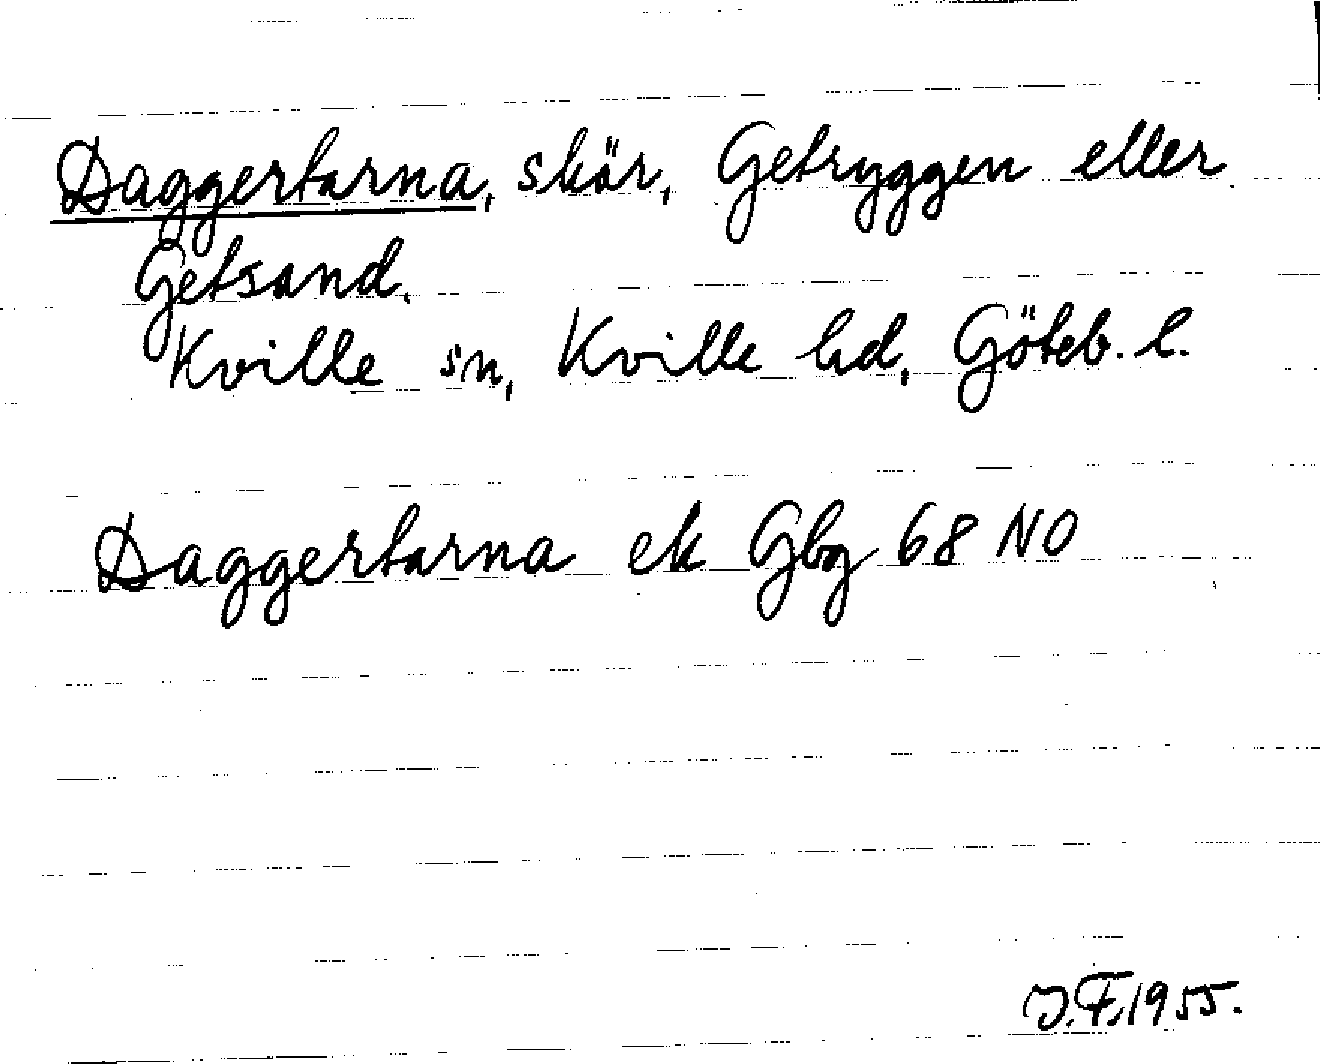 Daggertarna, skär, Getryggen eller
Getsand.
Kville sn, Kville hd, Göteb. l.
Daggertarna ek Gbg 68 NO
J.F. 1955.